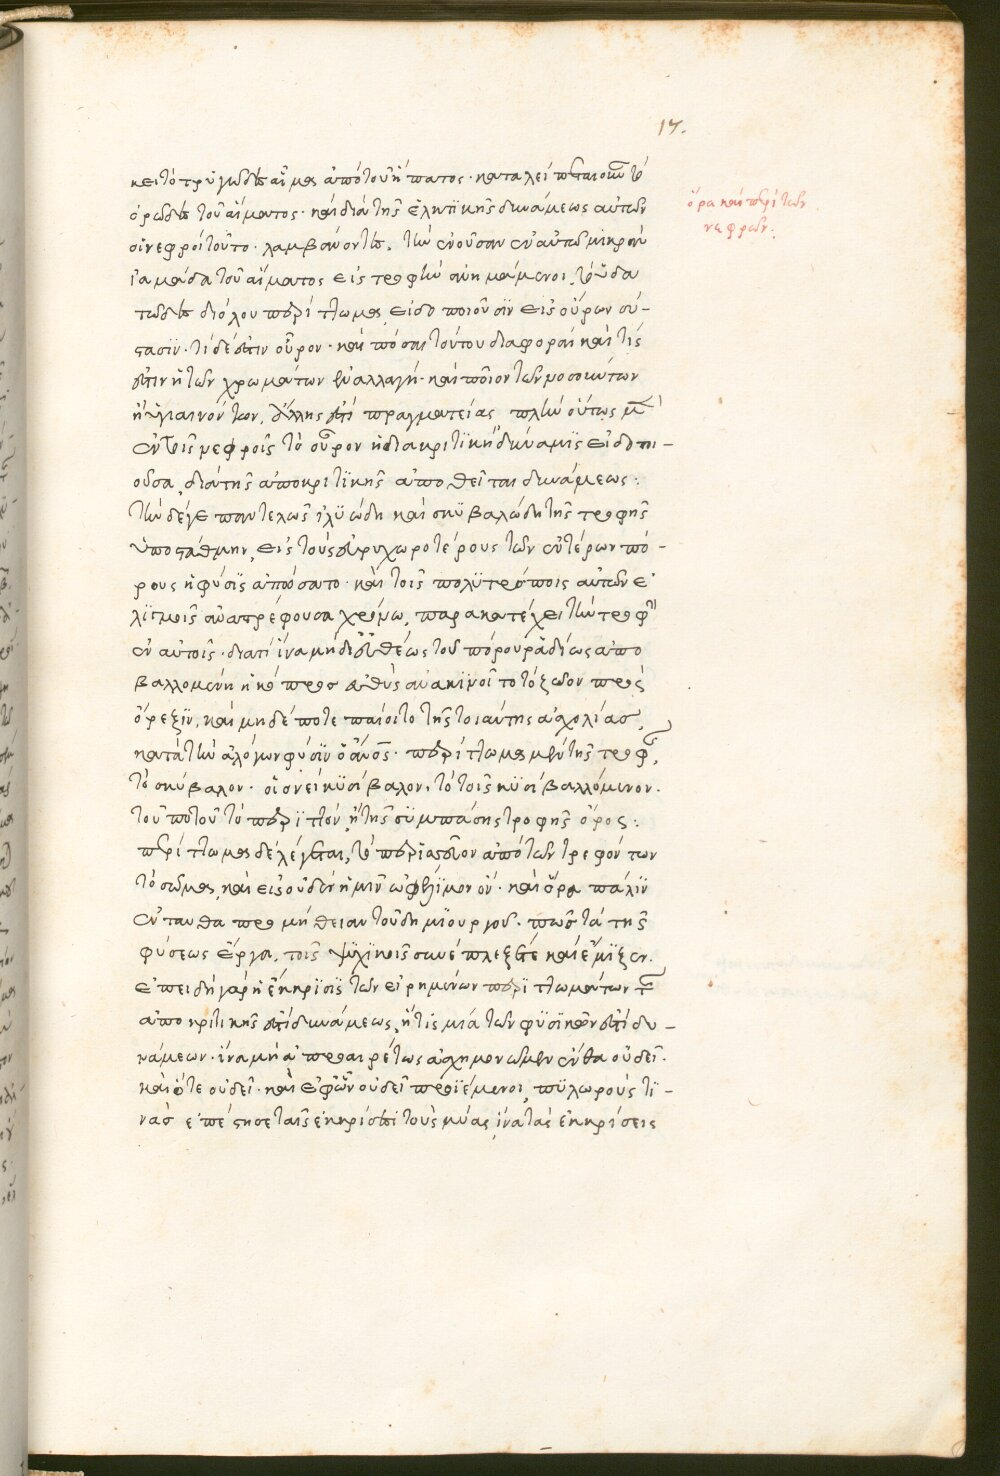 17.
κει τὸ τρυγῶδες αἷμα ἀπὸ τοῦ ἥπατος· καταλείπεται οὖν τὸ
ὀρῶδες τοῦ αἵματος· καὶ διὰ τῆς ἑλκτϊκῆς δυνάμεως αὐτῶν
οἱ νεφροὶ τοῦτο λαμβάνοντες, τὴν ἐνοῦσαν ἐν αὐτῶ μικρὰν
ἰκμάδα τοῦ αἵματος εἰς τροφὴν
τῶδες διόλου περίττωμα, εἰδοποιοῦσϊν εἰς οὔρων σύ-
στασϊν· τί δέ ἐστιν οὖρον· καὶ πόσαι τούτου διαφοραὶ καὶ τίς
ἐστιν ἡ τῶν χρωμάτων ἐναλλαγή· καὶ ποῖον τῶν νοσούντων
ἢ ὑγιαινόντων, ἄλλης ἐστὶ πραγματείας πλὴν οὕτως
ἐν τοῖς νεφροῖς τὸ οὖρον ἡ διακριτϊκὴ δύναμϊς εἰδοποι-
οῦσα, διὰ τῆς ἀποκριτϊκῆς ἀποθεῖται δυνάμεως:
τὴν δέ γε παντελῶς ἰλϋώδη καὶ σκϋβαλώδη τῆς τροφῆς
ὑποστάθμην, εἰς τοὺς εὐρυχωροτέρους τῶν ἐντέρων πό-
ρους ἡ φύσϊς ἀπώσατο· καὶ τοῖς πολϋτρόποις αὐτῶν ἑ
λϊγμοῖς ἀναστρέφουσα χρόνω, παρακατέχει τὴν τροφὴν
ἐν αὐτοῖς· διατί ἵνα μὴ δι' εὐθέως τοῦ πόρου ῥαδίως ἀπο
βαλλομένη ἡ κόπρος εὐθὺς ἀνακϊνοῖ τὸ ζῶον πρὸς
ὄρεξϊν, καὶ μηδέποτε παύοιτο τῆς τοιαύτης ἀσχολίας,
κατὰ τὴν ἀλόγων φύσϊν ὁ ἄνος· περίττωμα μὲν τῆς τροφῆς,
τὸ σκύβαλον· οἱονεὶ κϋσίβαλον, τὸ τοῖς κϋσὶ βαλλόμενον.
τοῦ ποτοῦ τὸ περϊττὸν, ἢ τῆς σϋμπάσης τροφῆς ὀρος:
περίττωμα δὲ λέγεται, τὸ περϊσσεῦον ἀπὸ τῶν τρεφόντων
τὸ σῶμα, καὶ εἰς οὐδὲν ἡμῖν ὠφέλϊμον ὄν· καὶ ὅρα πάλϊν
ἐνταῦθα προμήθειαν τοῦ δημϊουργοῦ· πῶς τὰ τῆς
φύσεως ἔργα, τοῖς ψϋχϊκοῖς συνέπλεξέ τε καὶ ἔμϊξεν.
ἐπειδὴ γὰρ ἡ ἔκκρϊσϊς τῶν εἰρημένων περϊττωμάτων τῆς
ἀποκριτικῆς ἐστὶ δυνάμεως, ἥτις μία τῶν φϋσϊκῶν ἐστὶ δυ-
νάμεων· ἵνα μὴ ἀπροαιρέτως ἀσχημονῶμεν ἔνθα οὐ δεῖ.
καὶ ὅτε οὐ δεῖ· καὶ ἐφ' ὧν οὐ δεῖ προϊέμενοι, πϋλωροὺς τϊ-
νὰς ἐπέστησε ταῖς ἐκκρίσεσι τοὺς μύας, ἵνα τὰς ἐκκρίσεις
ὅρα καὶ περὶ τῶν
νεφρῶν: